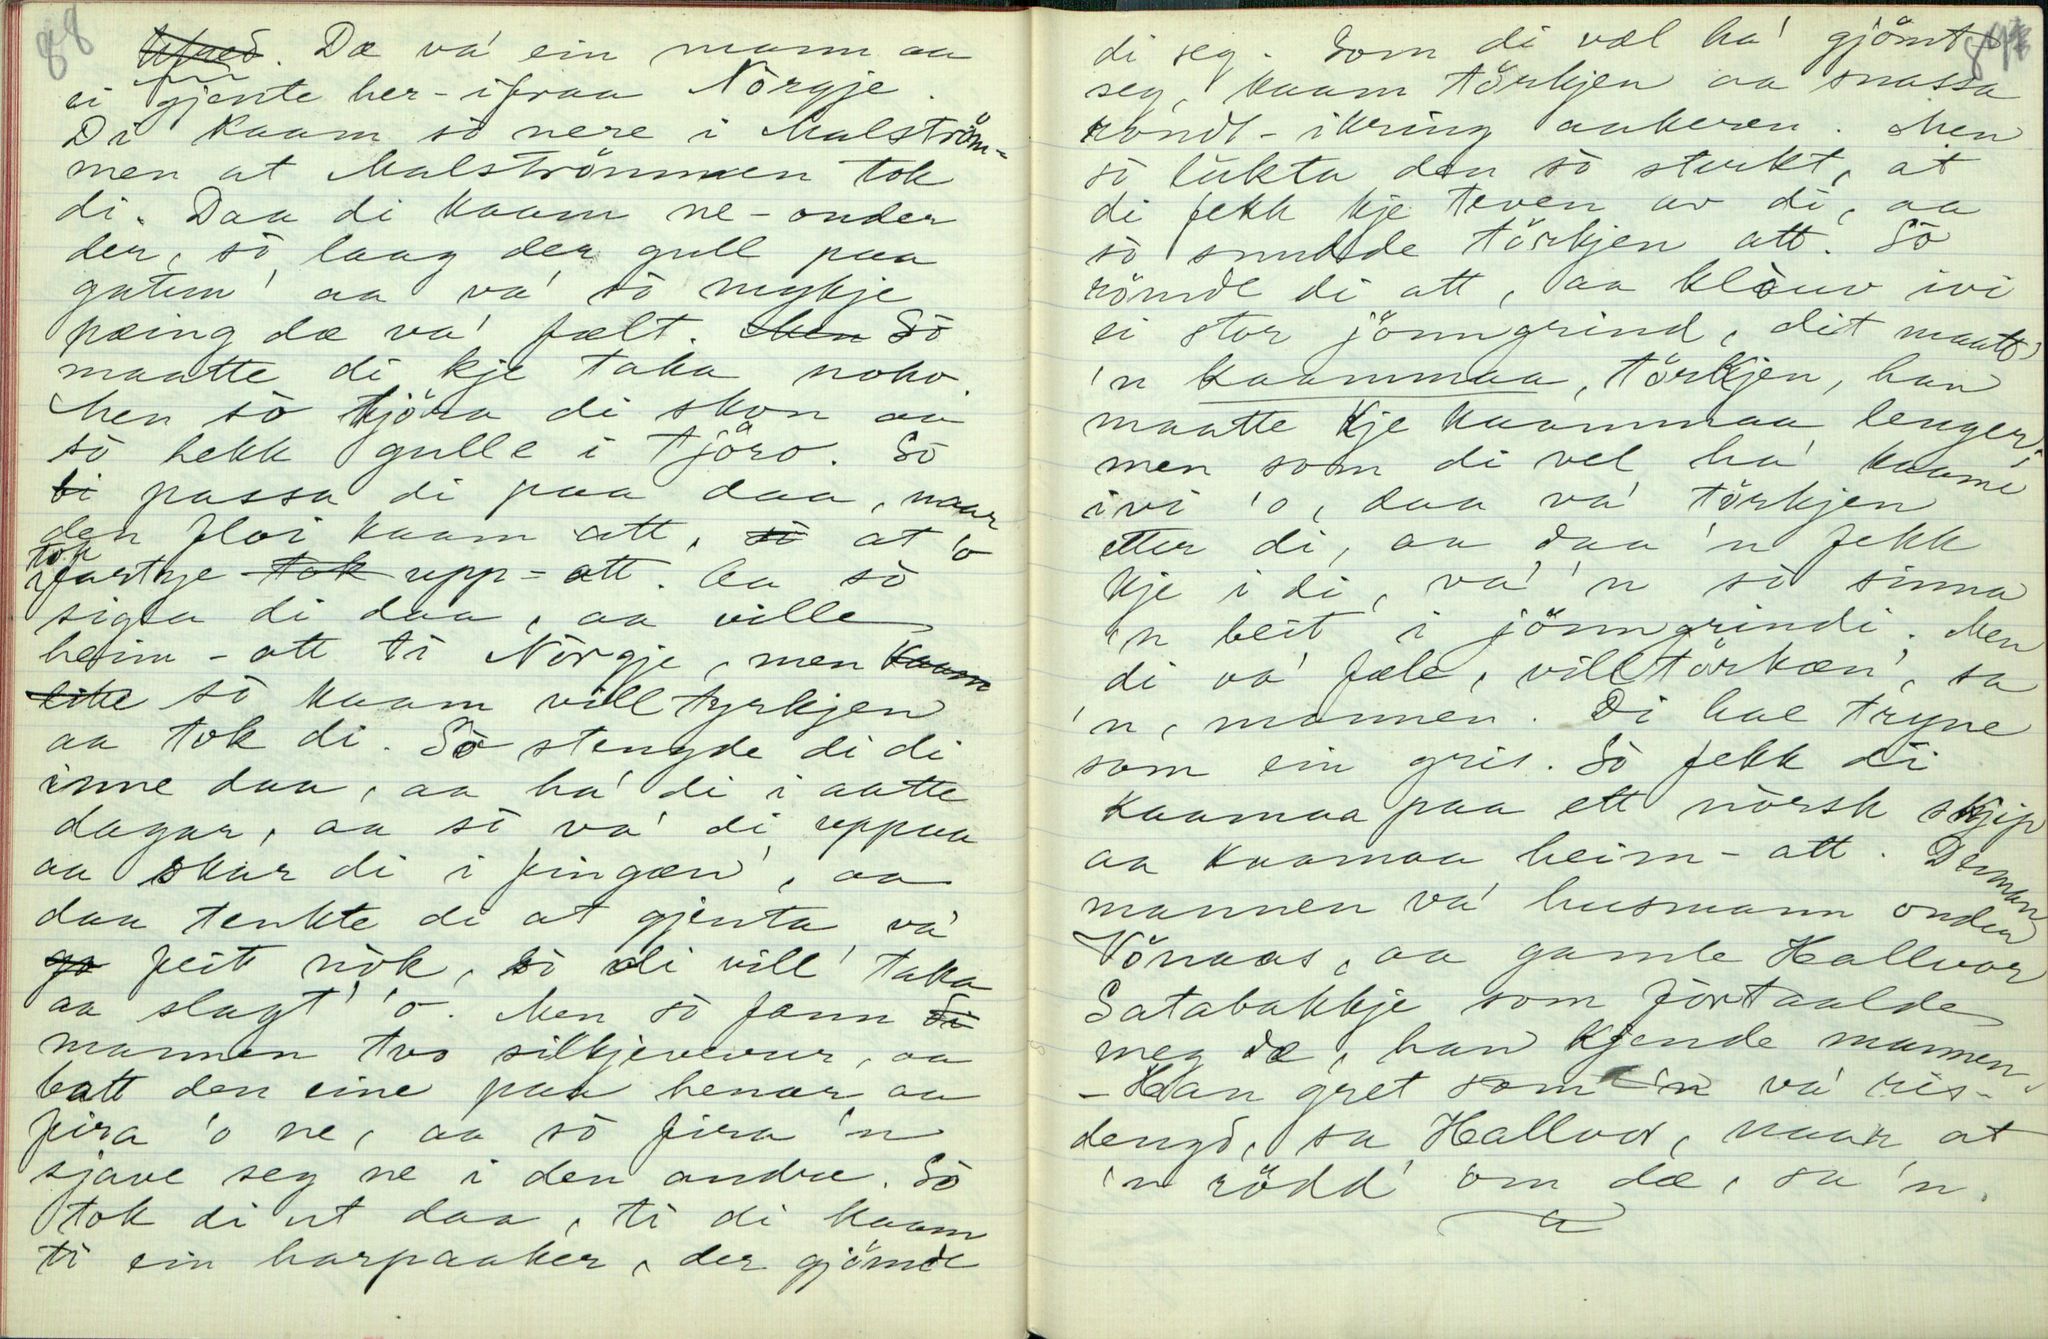 88
Dæ va' ein mann aa
ei gjente her-ifraa Nörgje.
Di kaam so nere i Malström-
men at Malströmmen tok
di. Daa di kaam ne-onder
der, so laag der gull paa
gatun' aa va' so mykje
pæing dæ va' fælt. So
maatte di kje taka noko.
Men so tjöra di skon aa
so hekk gulle i tjöro. So
passa di paa daa, naar
den floi kaam att, at 'o
tok
farty'e upp-att. Aa so
sigla di daa, aa ville
heim-att ti Nörgje, men
so kaam villtyrkjen
aa tok di. So stengde di di
inne daa, aa ha' di i aatte
dagar, aa so va' di uppaa
aa skar di i fingæn', aa
daa tenkte di at gjenta va'
feit nok, so di vill' taka
aa slagt' 'o. Men so fann
mannen tvo silkjevevur, aa
batt den eine paa henar aa
fira 'o ne, aa so fira 'n
sjave seg ne i den andre. So
tok di ut daa, ti di kaam
ti ein harpaaker, der gjömde
di seg. Som di væl ha' gjömt
seg, kaam törkjen aa snassa
rondt-ikring aakeren. Men
so lukta den so sterkt, at
di fekk kje teven av di, aa
so snudde törkjen att. So
römde di att, aa klouv ivi
ei stor jönngrind, dit maatt'
'n kaammaa, törkjen, han
maatte kje kaammaa lenger,
men som di vel ha' kaame
ivi 'o, daa va' törkjen
etter di, aa daa 'n fekk
kje i di, va' 'n so sinna
'n beit i jönngrindi. Men
di va' fæle, villtörkæn', sa
'n, mannen. Di hae tryne
som ein gris. So fekk di
kaamaa paa ett norsk skjip
aa kaamaa heim-att. Denman
mannen va' husmann onder
Vönaas, aa gamle Hallvor
Satabakkje som förtaalde
meg dæ, han kjende mannen.
- Han gret som 'n va' ris-
dengd, sa Hallvor, naar at
'n rödd' om dæ, sa 'n.